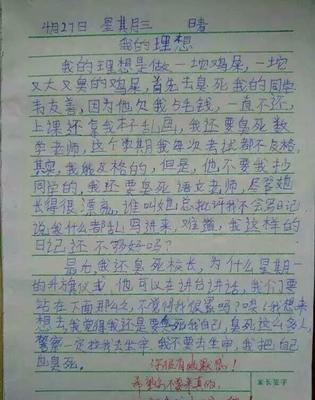 4月27日 星期三 晴
我的理想
我的理想是做一坨鸡屎,一坨
又大又臭的鸡屎,首先去臭死我的同学
韦友善,因为他欠我5毛钱,一直不还,
上课还拿我本子乱画,我还要臭死数
学老师,这个学期我每次考试都不及格.
其实,我能及格的,但是,他不要我抄
同学的,我还要臭死语文老师,尽管她
长得很漂亮,谁叫她总批评我不会写日记
说我什么都乱写进来,难道,我这样的
日记还不够好吗?
最后,我还臭死校长,为什么星期一
的升旗仪式他可以在讲台讲话,我们要
站在下面那么久,不觉得我很累吗?唉,我想来
想去,我觉得我还是要臭死我自己,臭死这么多人,
警察一定拉我去坐牢,我不要去坐牢,我把自己
臭死.
你很有幽默感!
家长签字